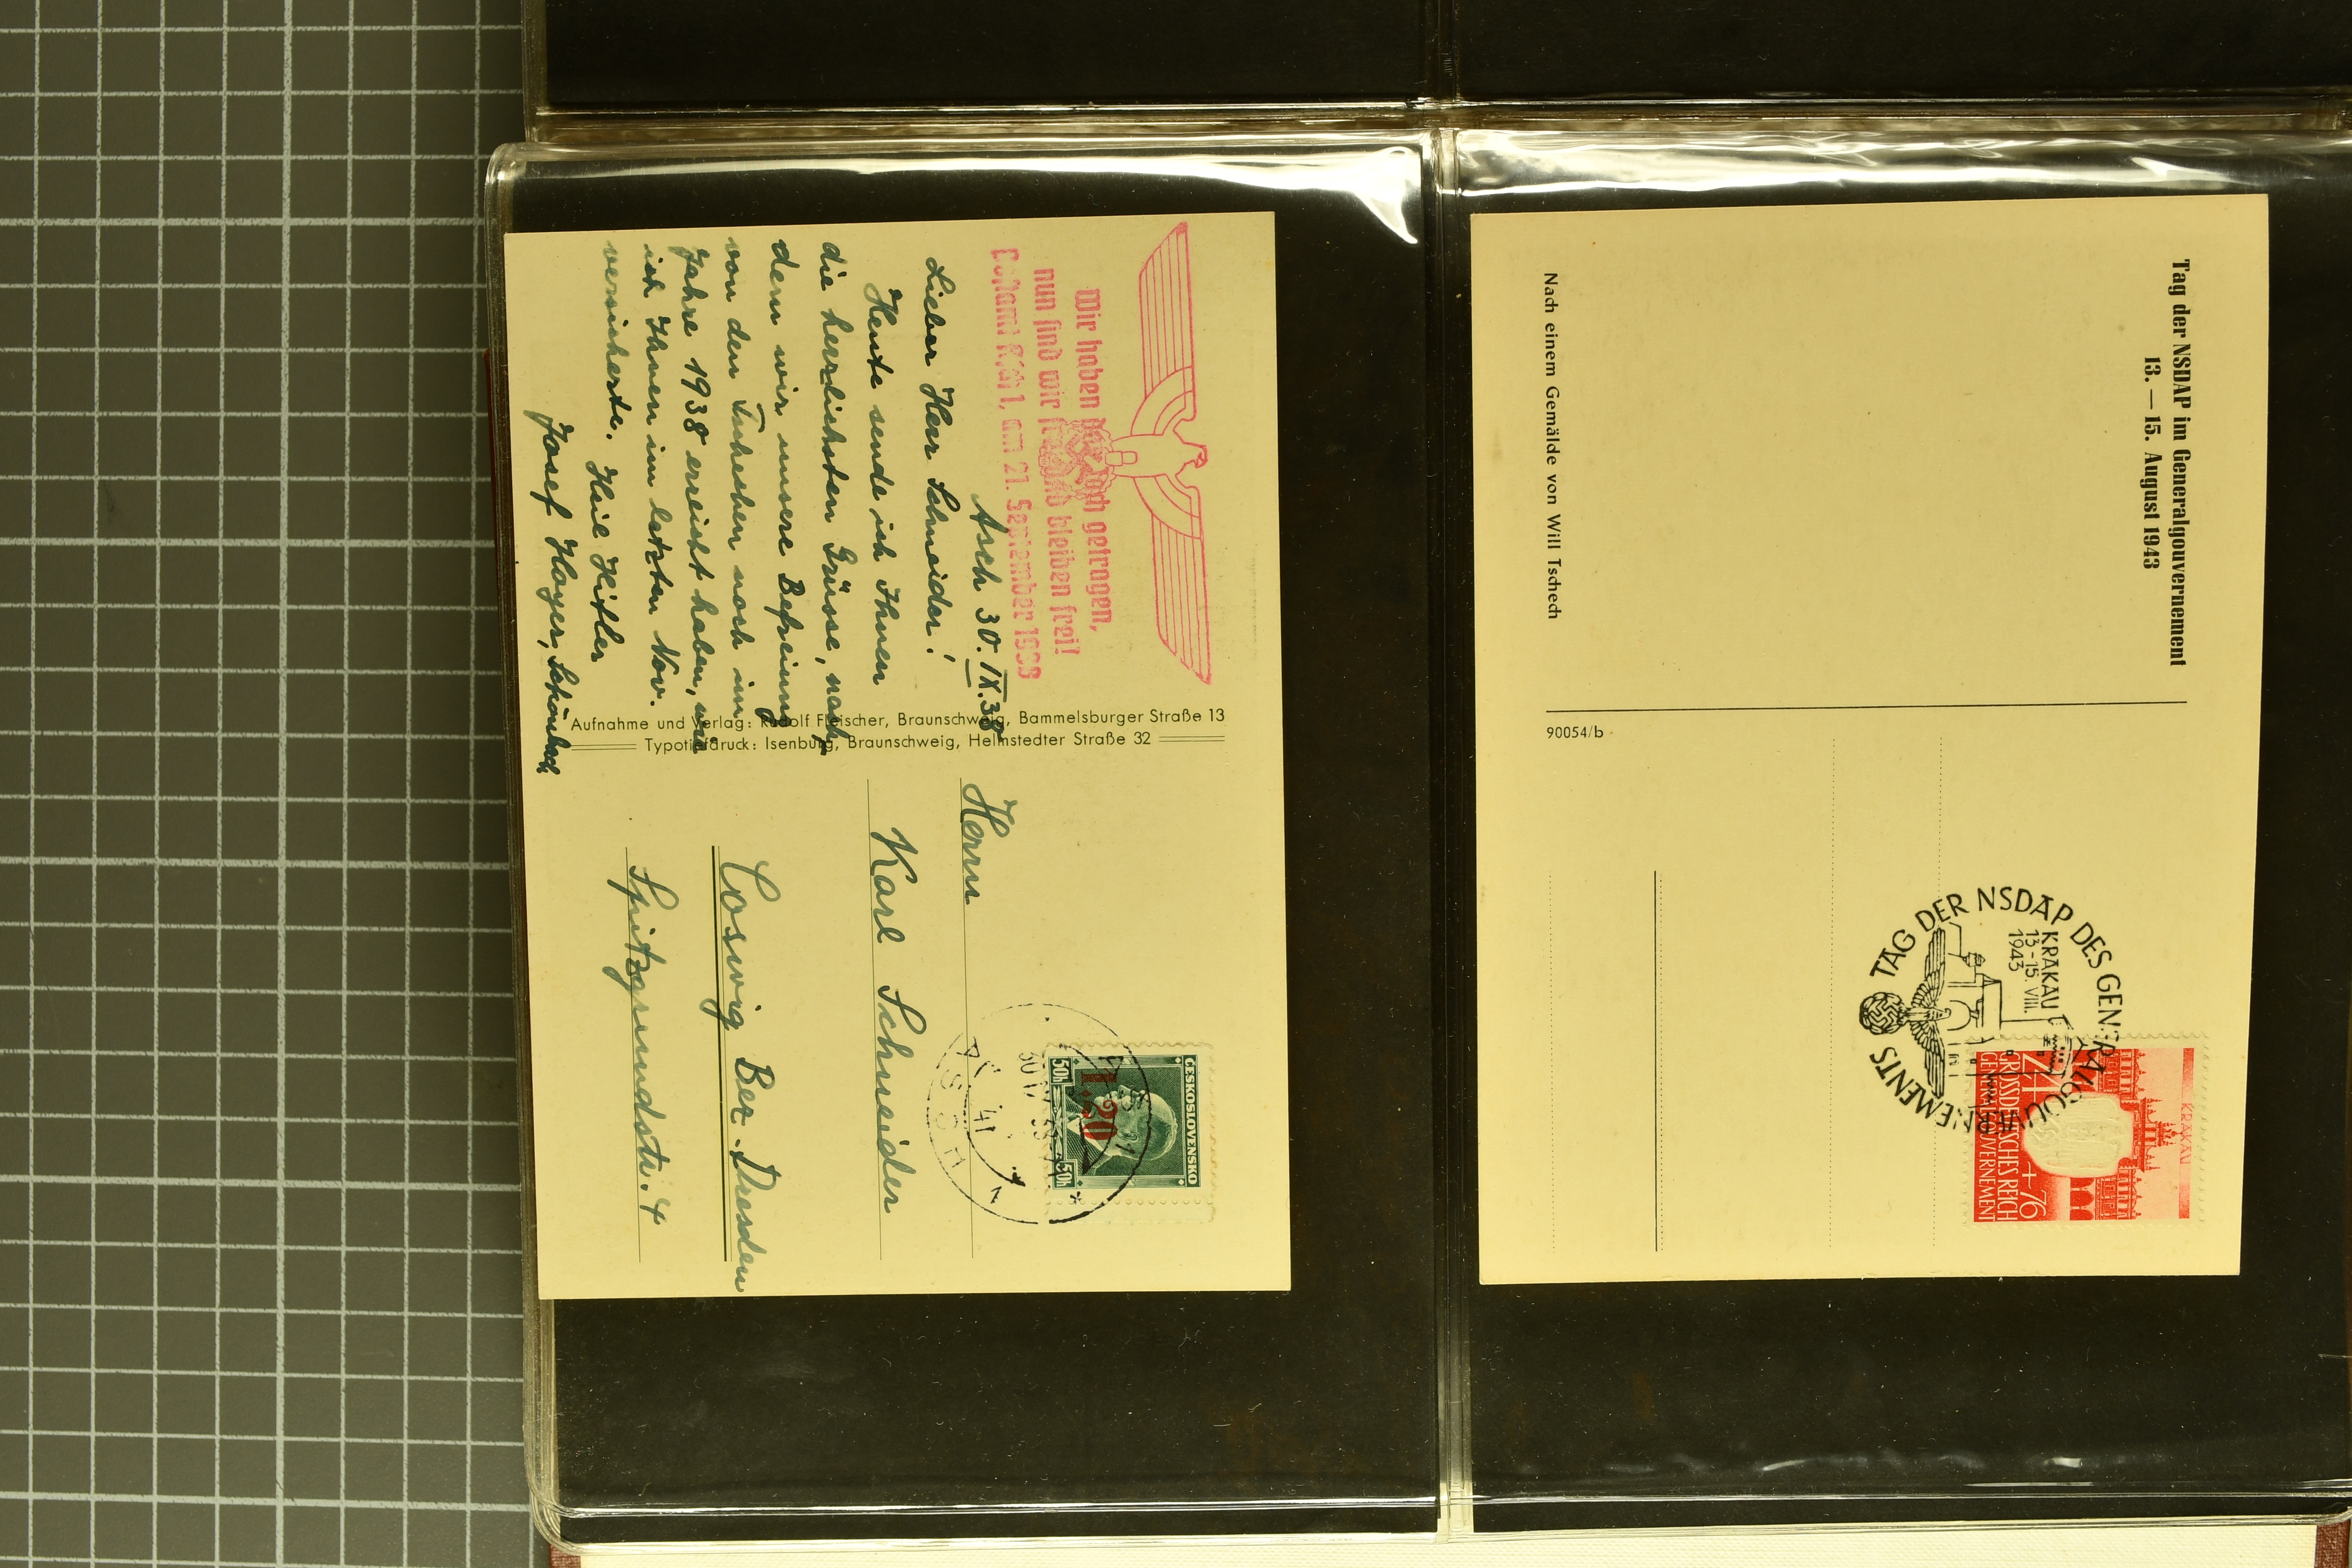 Wir haben das Joch getragen,
nun sind wir frei und bleiben frei!
Postamt Asch 1, am 21. September 1938
Asch 30.IX.38
Lieber Herr Schneider!
Heute sende ich Ihnen
die herrlichsten Grüsse, nach-
dem wir unsere Befreiung
von den Tschechen noch im
Jahre 1938 erreicht haben, wie
ich Ihnen im letzten Nov.
versicherte. Heil Hitler
Josef Hoyer, Schönbach
Aufnahme und Verlag: Rudolf Fleischer, Braunschweig, Bammelsburger Straße 13
Typotiefdruck: Isenburg, Braunschweig, Helmstedter Straße 32
ČESKOSLOVENSKO
50h 50h
1.20
AŠ 1
ASCH
Herrn
Karl Schneider
Coswig Bez. Dresden
Spitzgrundstr. 4
Tag der NSDAP im Generalgouvernement
13. — 15. August 1943
Nach einem Gemälde von Will Tschech
90054/b
TAG DER NSDAP DES GENERALGOUVERNEMENTS
KRAKAU
13-15. VIII.
1943
KRAKAU
24 + 76
GROSSDEUTSCHES REICH
GENERALGOUVERNEMENT